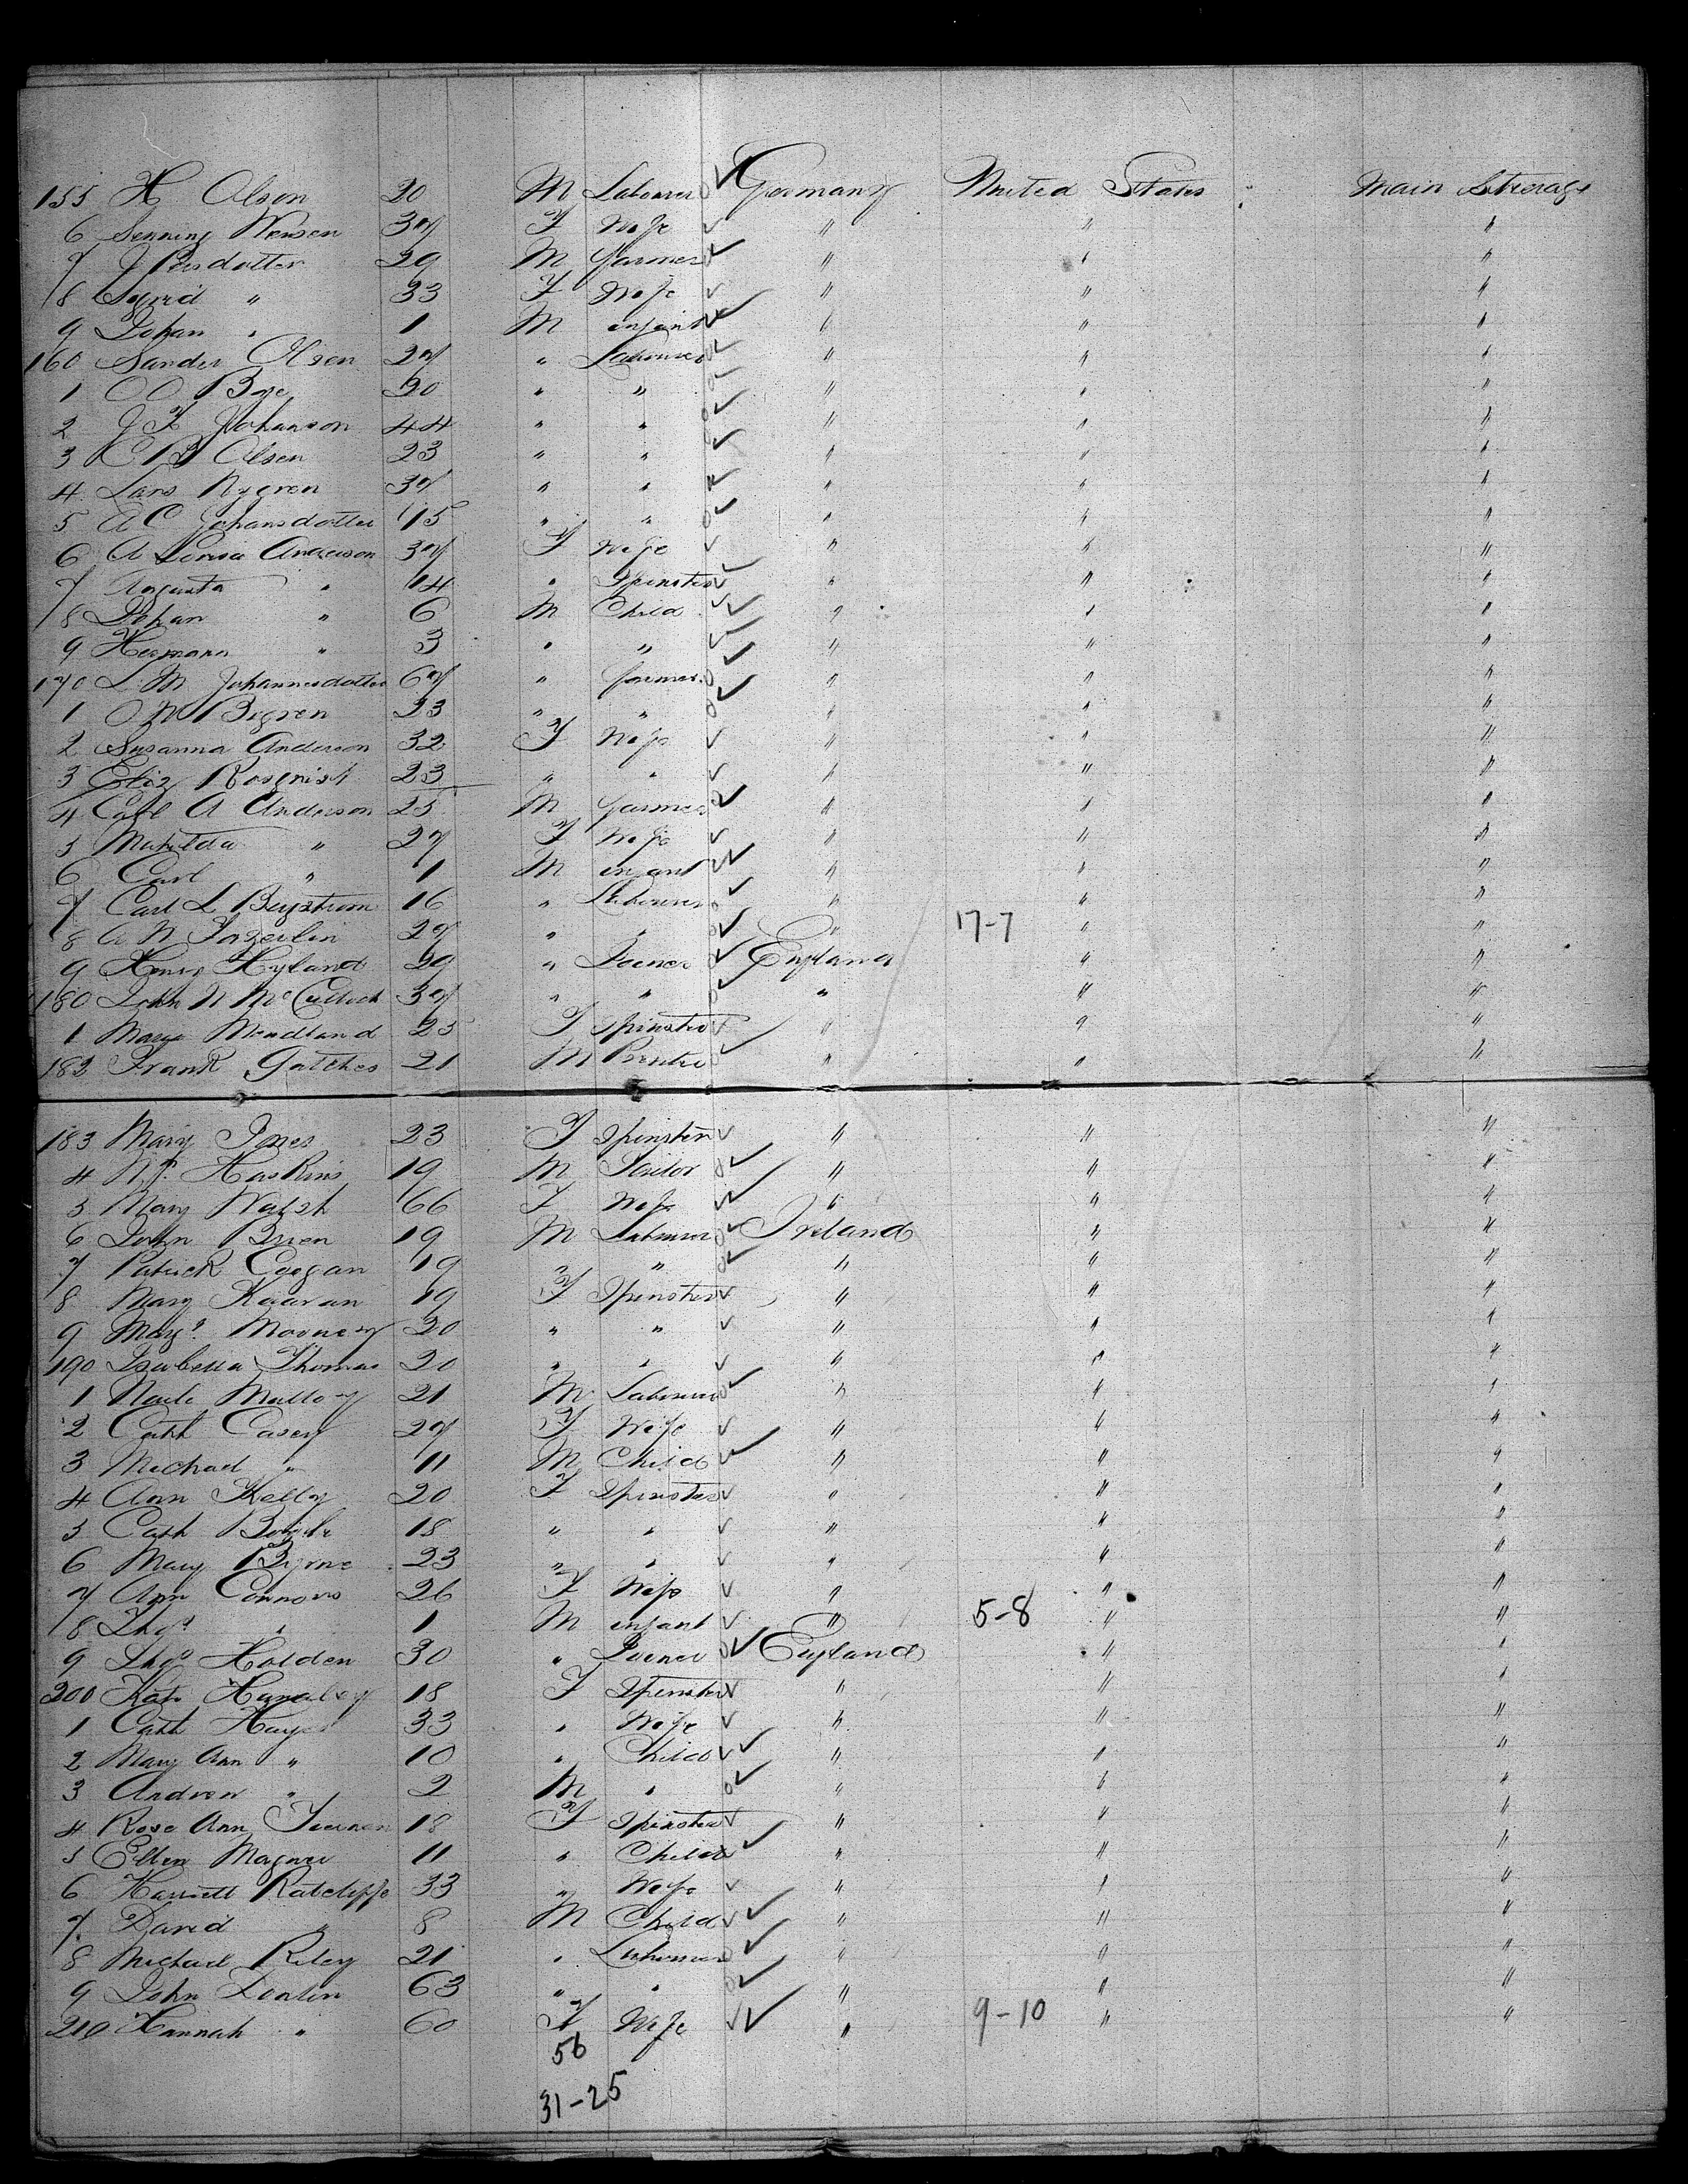 155 H Olson 20 M Labourer Germany United States Main Steerage
6 37 F Wife " " "
7 J 29 M farmer " " "
8 Sigrid " 33 F Wife " " "
9 Johan " 1 M infant " " "
160 Sander Olsen 27 " Labourer " " "
1 O O 20 " " " " "
2 J F Johanson 44 " " " " "
3 C B Olsen 23 " " " " "
4 Lars Nygren 37 " " " " "
5 A C Johansdotter 15 " " " " "
6 A Lovisa Anderson 37 F Wife " " "
7 Augusta " 14 " Spinster " " "
8 Johan " 6 M Child " " "
9 Hermann " 3 " " " " "
170 L M Johannesdotter 67 " farmer " " "
1 23 " " " " "
2 Susanna Anderson 32 F Wife " " "
3 Eliz 23 " " " " "
4 Carl A Anderson 25 M farmer " " "
5 Matilda " 27 F Wife " " "
6 Carl " 1 M infant " " "
7 Carl L Bergstrom 16 " Labourer " " "
8 A N 27 " " " 17-7 " "
9 Henry Hyland 29 " Joiner England " "
180 John N McCulloch 37 " " " " "
1 25 F Spinster " " "
182 Frank Gatches 21 M " " "
183 Mary Jones 23 F Spinster " " "
4 Wm Haskins 19 M Sailor " " "
5 Mary Walsh 66 F Wife " " "
6 John Brien 19 M Labourer Ireland " "
7 Patrick Coogan 19 " " " " "
8 Mary 19 F Spinster " " "
9 Margt Mooney 20 " " " " "
190 Isabella Thomas 20 " " " " "
1 Malloy 21 M Labourer " " "
2 Cath Casey 27 F Wife " " "
3 Michael " 11 M Child " " "
4 Ann Kelly 20 F Spinster " " "
5 Cath Boyle 18 " " " " "
6 Mary Byrne 23 " " " " "
7 Ann Connors 26 F Wife " " "
8 Thos " 1 M infant " 5-8 " "
9 Thos Holden 30 " Joiner England " "
200 Kate 18 F Spinster " " "
1 Cath Hayes 33 " Wife " " "
2 Mary Ann " 10 " Child " " "
3 Andrew " 2 M " " " "
4 Rose Ann Tiernan 18 F Spinster " " "
5 Ellen Magner 11 " Child " " "
6 Harriett Ratcliffe 33 " Wife " " "
7 David " 8 M Child " " "
8 Michael Riley 21 " Labourer " " "
9 John Donlin 63 " " " " "
210 Hannah " 60 F Wife " 9-10 " "
56
31-25